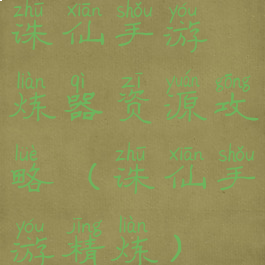 zhū xiān shǒu yóu
诛仙手游
liàn qì zī yuán gōng
炼器资源攻
lüè zhū xiān shǒu
略（诛仙手
yóu jīng liàn
游精炼）